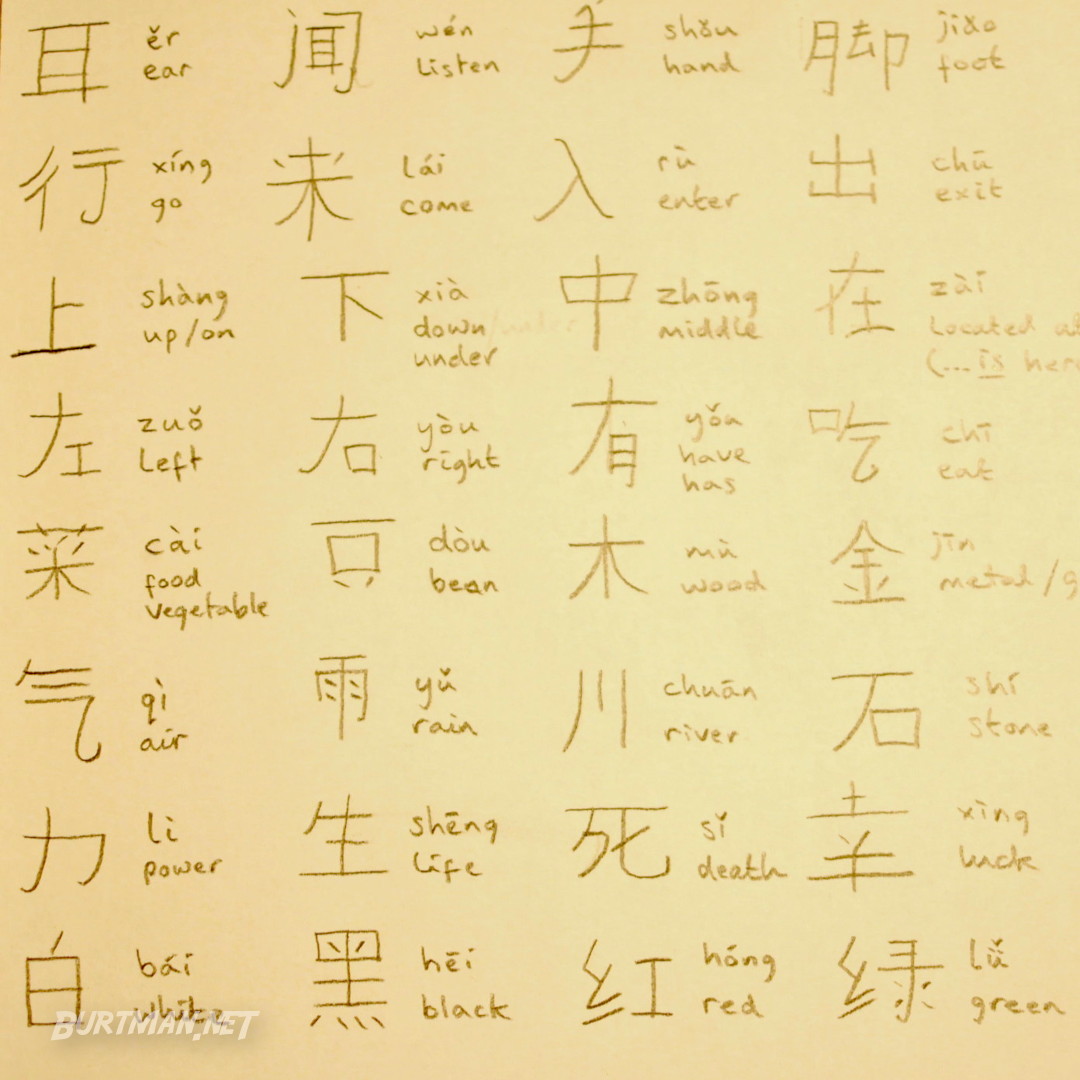 耳 ěr
ear
闻 wén
listen
手 shǒu
hand
脚 jiǎo
foot
行 xíng
go
来 lái
come
入 rù
enter
出 chū
exit
上 shàng
up/on
下 xià
down
under
中 zhōng
middle
在 zài
Located at
(... is her
左 zuǒ
left
右 yòu
right
有 yǒu
have
has
吃 chī
eat
菜 cài
food
vegetable
豆 dòu
bean
木 mù
wood
金 jīn
metal/g
气 qì
air
雨 yǔ
rain
川 chuān
river
石 shí
stone
力 lì
power
生 shēng
life
死 sǐ
death
幸 xìng
luck
白 bái
white
黑 hēi
black
红 hóng
red
绿 lǚ
green
BURTMAN.NET